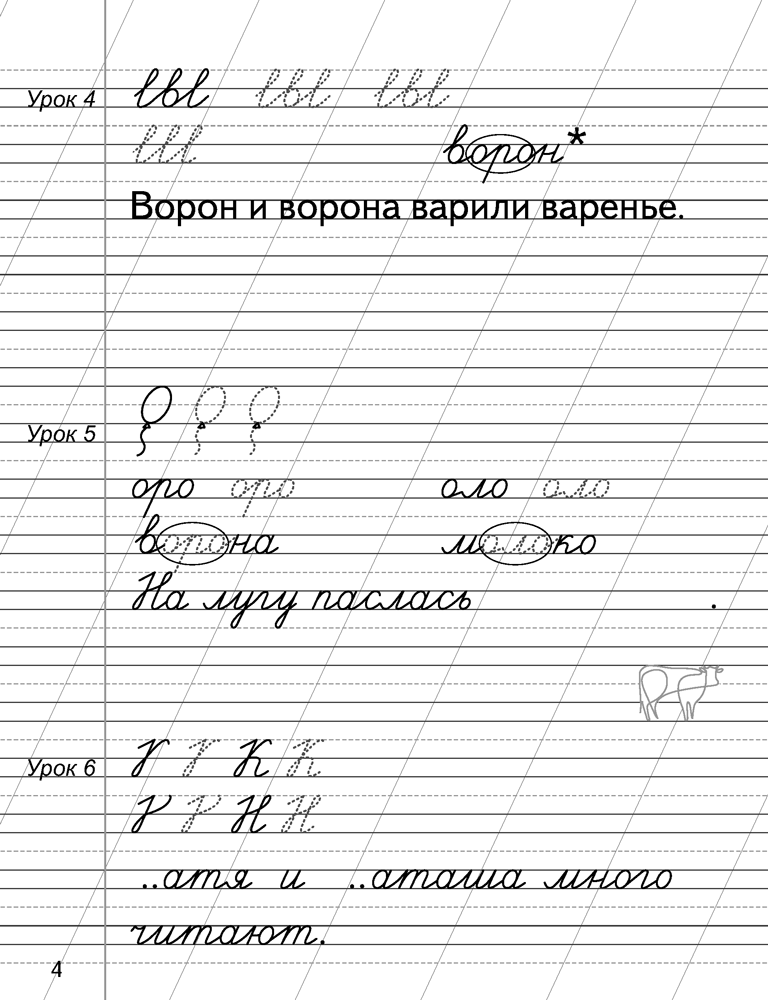 Урок 4 lвl lвl lвl
lll ворон*
Ворон и ворона варили варенье.
Урок 5
оро оро оло оло
ворона молоко
На лугу паслась .
Урок 6 К К
Н Н
..атя и ..аташа много
читают.
4